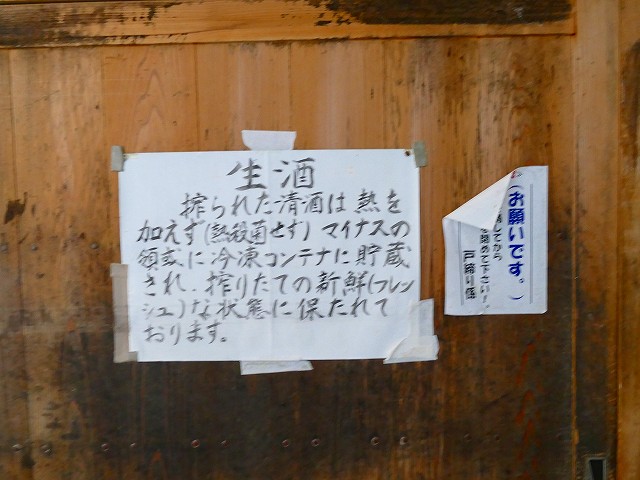 生酒
搾られた清酒は熱を
加えず(熱殺菌せず)マイナスの
領域に冷凍コンテナに貯蔵
され、搾りたての新鮮(フレッ
シュ)な状態に保たれて
おります。
(お願いです。)
してから
を閉めて下さい!
戸締り係